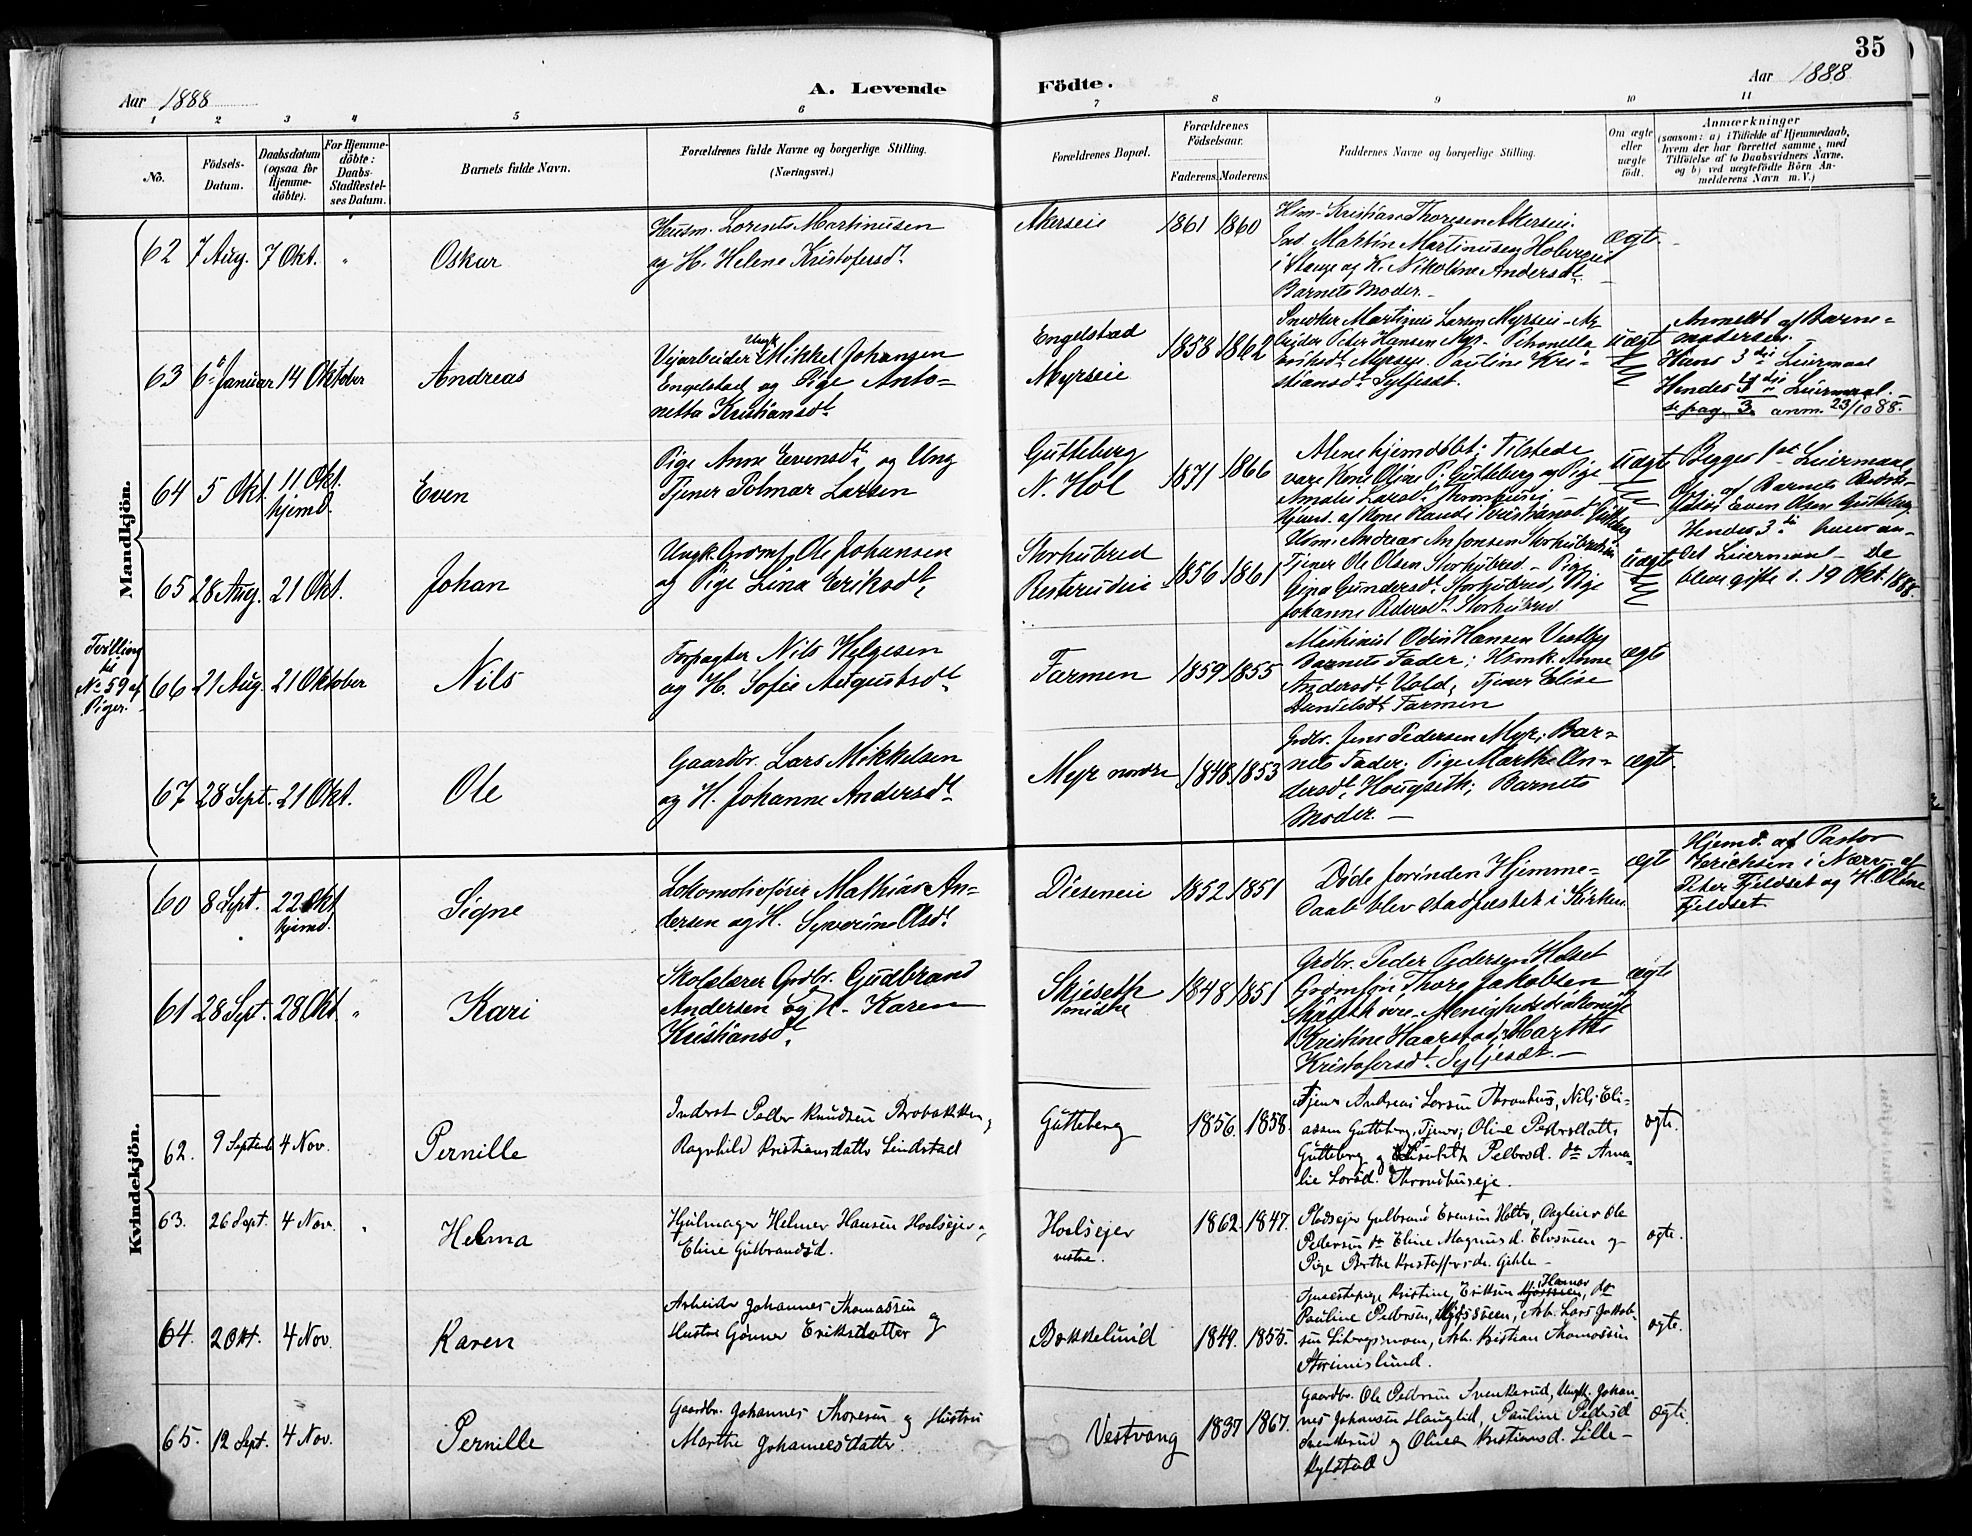 35
Aar 1888
A. Levende
Födte.
Aar 1888
1 2 3 4 5 6 7 8 9 10 11
No.
Födsels-
Datum.
Daabsdatum
(ogsaa for
Hjemme-
döbte).
For Hjemme-
döbte:
Daabs-
Stadfæstel-
ses Datum.
Barnets fulde Navn.
Forældrenes fulde Navne og borgerlige Stilling.
(Næringsvei.)
Forældrenes Bopæl.
Forældrenes
Födselsaar.
Faderens. Moderens.
Faddernes Navne og borgerlige Stilling.
Om ægte
eller
uægte
født.
Anmærkninger
(saasom: a) i Tilfælde af Hjemmedaab,
hvem der har forrettet samme, med
Tilföielse af to Daabsvidners Navne,
og b) ved uægtefödte Börn An-
melderens Navn m. V.)
Mandkjön.
62 7 Aug. 7 Okt. "
Oskar
Husm. Lorents Martinusen
og H. Helene Kristofersdt.
Akerseie
1861 1860
Hsm. Kristian Thoresen Akerseie.
Ind. Martin Martinusen Hoberg
i Stange og K. Nikoline Andersdt.
Barnets Moder.
ægte
63 6 Januar 14 Oktober
Andreas
Ungk.
Vejarbeider Mikkel Johansen
Engelstad og Pige Anto-
netta Kristiansdt.
Engelstad
Myrseie
1858 1862
Snedker Martinus Larsen Myrseie - Ar-
beider Peter Hansen Myr - Pernella
Myrseie. Pauline Kri-
stiansdt.
uægt
Anmeldt af Barne-
moderen.
Hans 3die Leiermaal
Hendes die Leiermaal.
se pag. 3. anm. 23/10 88.
64 5 Okt. 11 Okt.
hjemd.
Even
Pige Anne Evensdt. og Ung
Tjener Polmar Larsen
Gutteberg
N. Hol
1871 1866
Alene hjemdöbt; Tilstede
vare Kone Oline P. Gutteberg og Pige
Amalie Larsd. Thronhusei
Hjemd. af Kone Randi Kristiansd. Gutteberg
uægte
Begges 1ste Leiermaal
Opg. af Barnets
fader Even Olsen Gutteberg.
65 28 Aug. 21 Okt.
Johan
Ungk. Grdmd. Ole Johansen
og Pige Lina Eriksdt.
Storhubred
Resterudeie
1856 1861
Hsm. Andreas Antonsen Storhubredeie
Tjener Ole Olsen Storhubred - Pige
Gina Gundersdt. Storhubred, Pige
Johanne Pedersdt. Storhubred
uægte
Hendes 3die hans an-
det Leiermaal - De
blev gifte d. 19 Okt. 1888.
Tvilling
til
No 59 af
Piger.
66 21 Aug. 21 Oktober
Nils
Forpagter Nils Helgesen
og H. Sofie Augustsdt.
Farmen
1859 1855
Maskinist Odin Hansen Vestby
Barnets Fader; Hsmk. Anne
Andersdt. Vold, Tjener Elise
Danielsdt. Farmen
ægte
67 28 Sept. 21 Okt.
Ole
Gaardbr. Lars Mikkelsen
og H. Johanne Andersdt.
Myr nordre
1848 1853
Grdbr. Jens Pedersen Myr; Bar-
nets Fader; Pige Marthe An-
dersdt. Hougseth; Barnets
Moder. -
ægte
Kvindekjön.
60 8 Sept. 22 Okt
hjemd.
Signe
Lokomotivfører Mathias An-
dersen og H. Syverine Olsdt.
Dieseneie
1852 1851
Døde forinden Hjemme-
daab blev stadfæstet i Kirken
ægte
Hjemd. af Pastor
Erichsen i Nærv. af
Peter Fjeldset og H. Oline
Fjeldset.
61 28 Sept. 28 Okt. "
Kari
Skolelærer Grdbr. Gudbrand
Andersen og H. Karen
Kristiansdt.
Skjeseth
midtre
1848 1851
Grdbr. Peder Pedersen Helset
Grdmsøn Thore Jakobsen
Skjeseth øvre - Menighedsdiakonisse
Kristine Haarstad; Marthe
Kristofersdt. Syljesæt. -
ægte
62. 9 Septemb 4 Nov.
Pernille
Inderst Peder Knudsen Brobakken
og
Ragnhild Kristiansdatter Lindstad
Gutteberg
1856. 1858.
Tjener Andreas Larsen Thronhus, Nils Eli-
assen Gutteberg, Tjener; Oline Pedersdatter
Gutteberg og Lisabeth Pedersd. do Ama-
lie Larsd. Throndhuseje.
ægte.
63. 26 Sept. 4 Nov. "
Helma
Hjulmager Helmer Hansen Hoelsejer,
Eline Gulbrandsd.
Hoelsejer
vestre.
1862. 1847.
Pladsejer Gulbrand Evensen Holte, Dagleier Ole
Pedersen do Eline Magnusd. Elvsveen og
Pige Berthe Kristoffersdr. Gihle -
ægte.
64. 2 Okt. 4 Nov.
Karen
Arbeider Johannes Thomassen og
Hustru Gunnor Eriksdatter
Bakkelund
1849. 1855.
Tjenestepige Kristine Eriksen Hamar, do
Pauline Pedersen, Arb. Lars Jakob-
sen Libergsmoen, Arb. Kristian Thomassen
Storimislund.
ægte.
65. 12 Sept. 4 Nov.
Pernille
Gaardbr. Johannes Thoresen og Hustru
Marthe Johannesdatter.
Vestvang
1837 1867.
Gaardbr. Ole Pedersen Svenkerud, Ungk. Johan-
nes Johansen Hauglid, Pauline Pedersd
Svenkerud og Olinea Kristiansd. Lille-
kylstad
ægte.